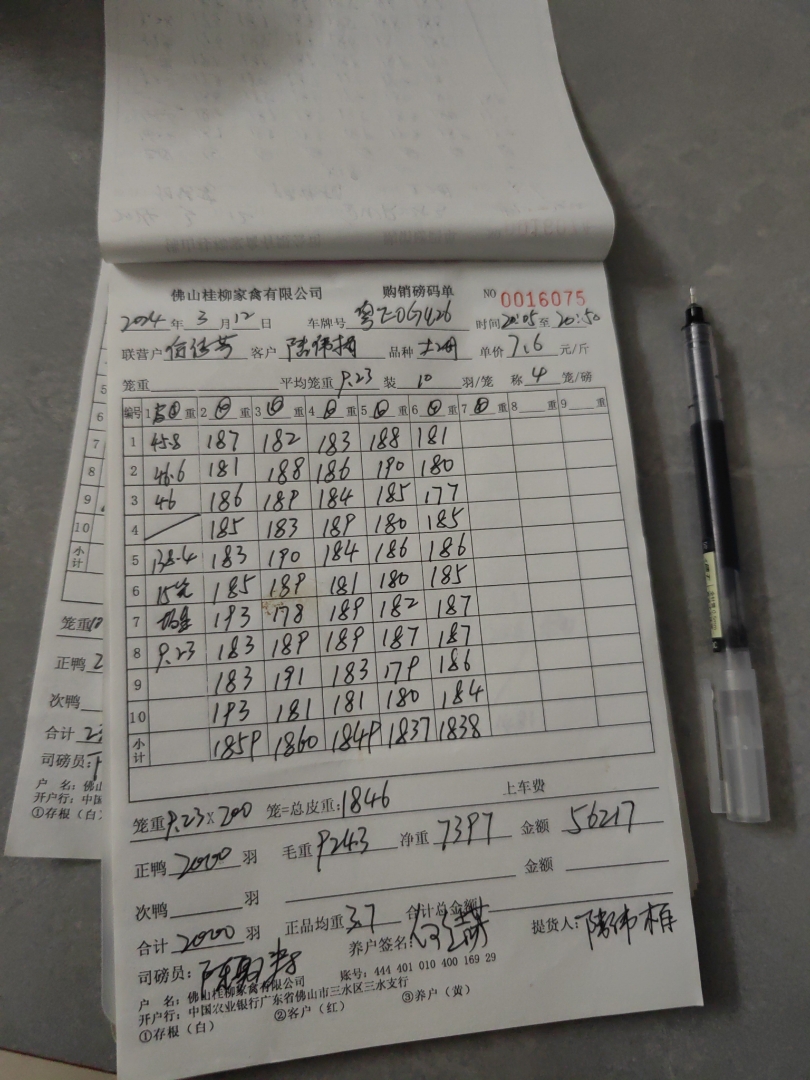 佛山桂柳家禽有限公司 购销磅码单 NO 0016075
2024年3月12日 车牌号 粤E0G426 时间20:05至20:50
联营户 客户 陆伟梅 品种 单价7.6元/斤
笼重 平均笼重9.23装10羽/笼 称4笼/磅
编号 1 重 2 重 3 重 4 重 5 重 6 重 7 重 8 重 9 重
1 45.8 187 182 183 188 181
2 46.6 181 188 186 190 180
3 46 186 189 184 185 177
4 185 183 189 180 185
5 138.4 183 190 184 186 186
6 15笼 185 189 181 180 185
7 193 178 189 182 187
8 9.23 183 189 189 187 187
9 183 191 183 179 186
10 193 181 181 180 184
小计 1859 1860 1849 1837 1838
笼重9.23×200 笼=总皮重:1846 上车费
正鸭2000羽 毛重9243净重7397金额56217
次鸭 羽 金额
合计2000羽 正品均重3.7合计总金额
司磅员: 养户签名: 提货人:
户 名:佛山桂柳家禽有限公司 账号:444 401 010 400 169 29
开户行:中国农业银行广东省佛山市三水区三水支行
①存根(白) ②客户(红) ③养户(黄)
5
6
7
8
9
10
小计
笼重
正鸭
次鸭
合计
司磅员:
户 名:佛山
开户行:中国
①存根(白)